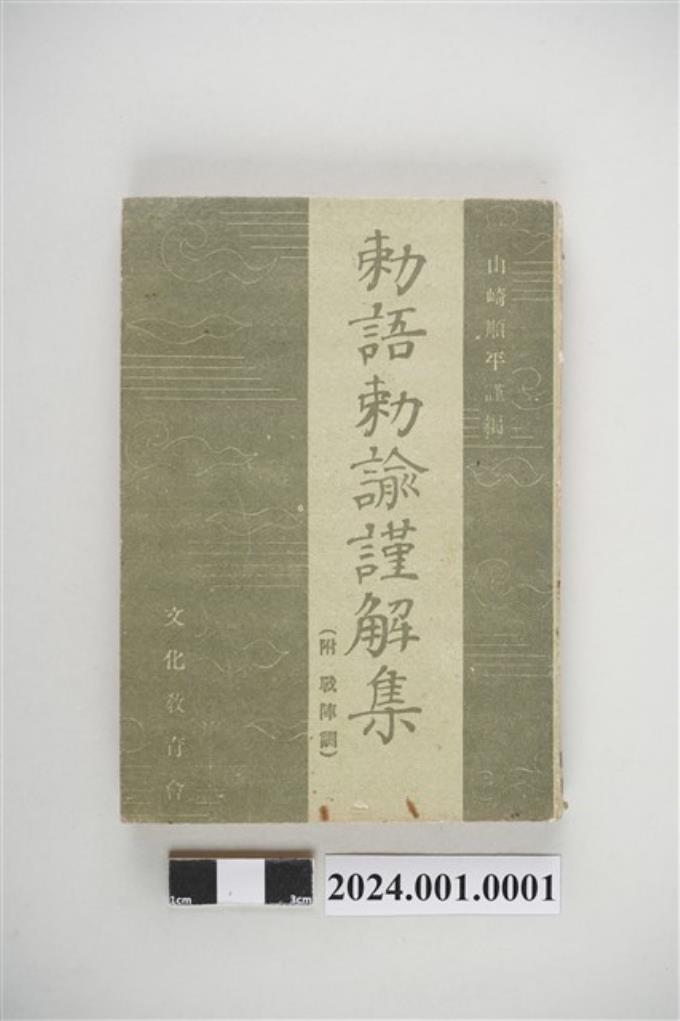 山崎順平謹編
勅語勅諭謹解集
(附 戰陣訓)
文化教育會
1cm
3cm
2024.001.0001